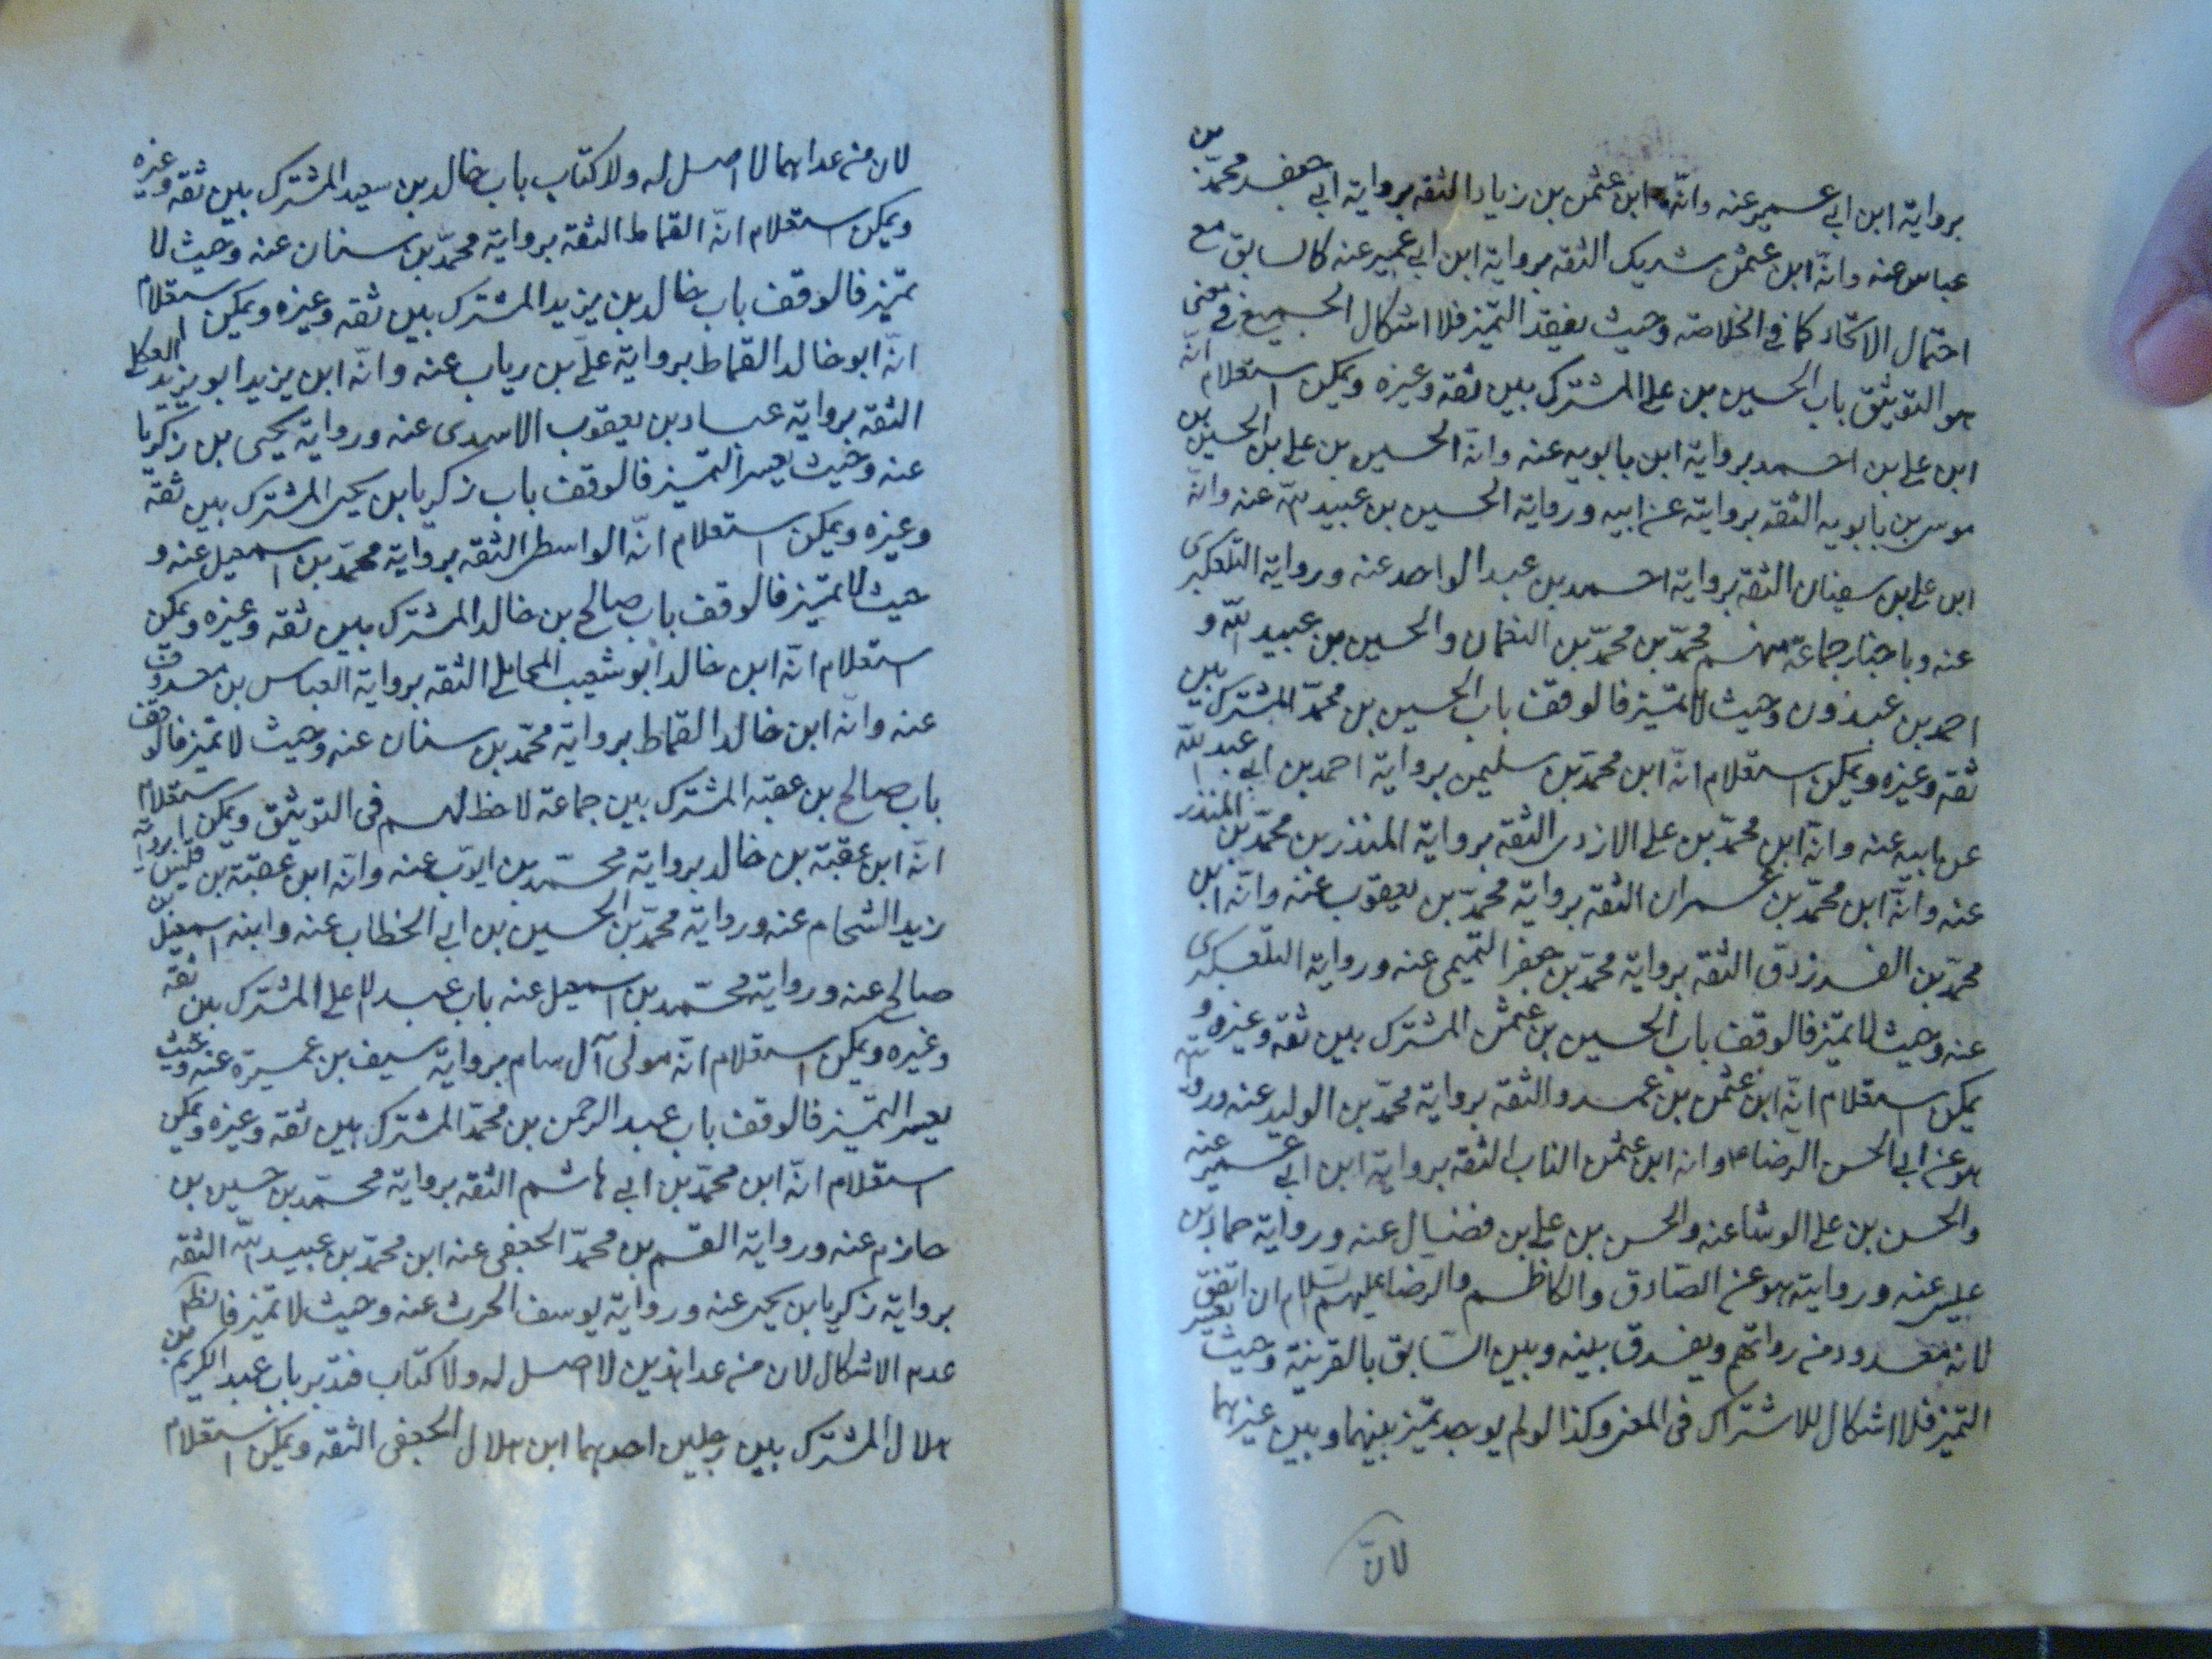 برواية ابن ابي عمير عنه وانّه ابن عثمن بن زياد الثقه برواية ابي جعفر محمّد بن
عباس عنه وانّه ابن عثمن شريك الثقه برواية ابن ابي عمير عنه كالسابق مع
احتمال الاتحاد كما في الخلاصه وحيث يفقد التميز فلا اشكال الجميع في معنى
هو التوثيق باب الحسين بن علي المشترك بين ثقه وغيره ويمكن استعلام انّه
ابن علي بن احمد برواية ابن بابويه عنه وانّه الحسين بن علي بن الحسين بن
موسى بن بابويه الثقه بروايته عن ابيه ورواية الحسين بن عبيد الله عنه وانّه
ابن علي بن سفيان الثقه برواية احمد بن عبد الواحد عنه ورواية التلعكبري
عنه وباخبار جماعة منهم محمّد بن محمّد بن النعمان والحسين بن عبيد الله و
احمد بن عبدون وحيث لا تميّز فالوقف باب الحسين بن محمّد المشترك بين
ثقه وغيره ويمكن استعلام انّه ابن محمّد بن سليمن برواية احمد بن ابي عبد الله
عن ابيه عنه وانّه ابن محمّد بن علي الازدي الثقه برواية المنذر بن محمّد بن المنذر
عنه وانّه ابن محمّد بن عمران الثقه برواية محمّد بن يعقوب عنه وانّه ابن
محمّد بن الفرزدق الثقه برواية محمّد بن جعفر التميمي عنه ورواية التلعكبري
عنه وحيث لا تميّز فالوقف باب الحسين بن عثمن المشترك بين ثقه وغيره و
يمكن استعلام انّه ابن عثمن بن عمرو الثقه برواية محمّد بن الوليد عنه وروايته
هو عن ابي الحسن الرضا ع وانه ابن عثمن الناب الثقه برواية ابن ابي عمير عنه
والحسن بن علي الوشا عنه والحسن بن علي بن فضال عنه ورواية حماد بن
عيسى عنه وروايته هو عن الصّادق والكاظم والرضا عليهم السّلام ان اتفق
لانه معدود من رواتهم ويفرق بينه وبين السّابق بالقرينة وحيث تعسر
التميّز فلا اشكال للاشتراك في المعنى وكذا لو لم يوجد تميّز بينهما وبين غيرهما
لانّ
لان من عداهما لا اصل له ولا كتاب باب خالد بن سعيد المشترك بين ثقه وغيره
ويمكن استعلام انّه القماط الثقه برواية محمّد بن سنان عنه وحيث لا
تميّز فالوقف باب خالد بن يزيد المشترك بين ثقه وغيره ويمكن استعلام
انّه ابو خالد القماط برواية عليّ بن رياب عنه وانّه ابن يزيد ابو يزيد العكلي
الثقه برواية عباد بن يعقوب الاسدي عنه ورواية يحيى بن زكريا
عنه وحيث يعسر التميّز فالوقف باب زكريا بن يحيى المشترك بين ثقه
وغيره ويمكن استعلام انّه الواسطي الثقه برواية محمّد بن اسمعيل عنه و
حيث لا تميّز فالوقف باب صالح بن خالد المشترك بين ثقه وغيره ويمكن
استعلام انّه ابن خالد ابو شعيب المحاملي الثقه برواية العباس بن معروف
عنه وانّه ابن خالد القماط برواية محمّد بن سنان عنه وحيث لا تميّز فالوقف
باب صالح بن عقبة المشترك بين جماعة لا حظ لهم في التوثيق ويمكن استعلام
انّه ابن عقبة بن خالد برواية محمّد بن ايوب عنه وانّه ابن عقبة بن قيس برواية
زيد الشحام عنه ورواية محمّد بن الحسين بن ابي الخطاب عنه وابنه اسمعيل بن
صالح عنه ورواية محمّد بن اسمعيل عنه باب عبد الاعلى المشترك بين ثقه
وغيره ويمكن استعلام انّه مولى آل سام برواية سيف بن عميرة عنه وحيث
يعسر التميّز فالوقف باب عبد الرحمن بن محمّد المشترك بين ثقه وغيره ويمكن
استعلام انّه ابن محمّد بن ابي هاشم الثقه برواية محمّد بن حسين بن
حازم عنه ورواية القسم بن محمّد الجعفي عنه ابن محمّد بن عبيد الله الثقه
برواية زكريا بن يحيى عنه ورواية يوسف الحرث عنه وحيث لا تميّز فانظر
عدم الاشكال لان من عدا هذين لا اصل له ولا كتاب فتدبر باب عبد الكريم بن
هلال المشترك بين رجلين احدهما ابن هلال الجعفي الثقه ويمكن استعلام